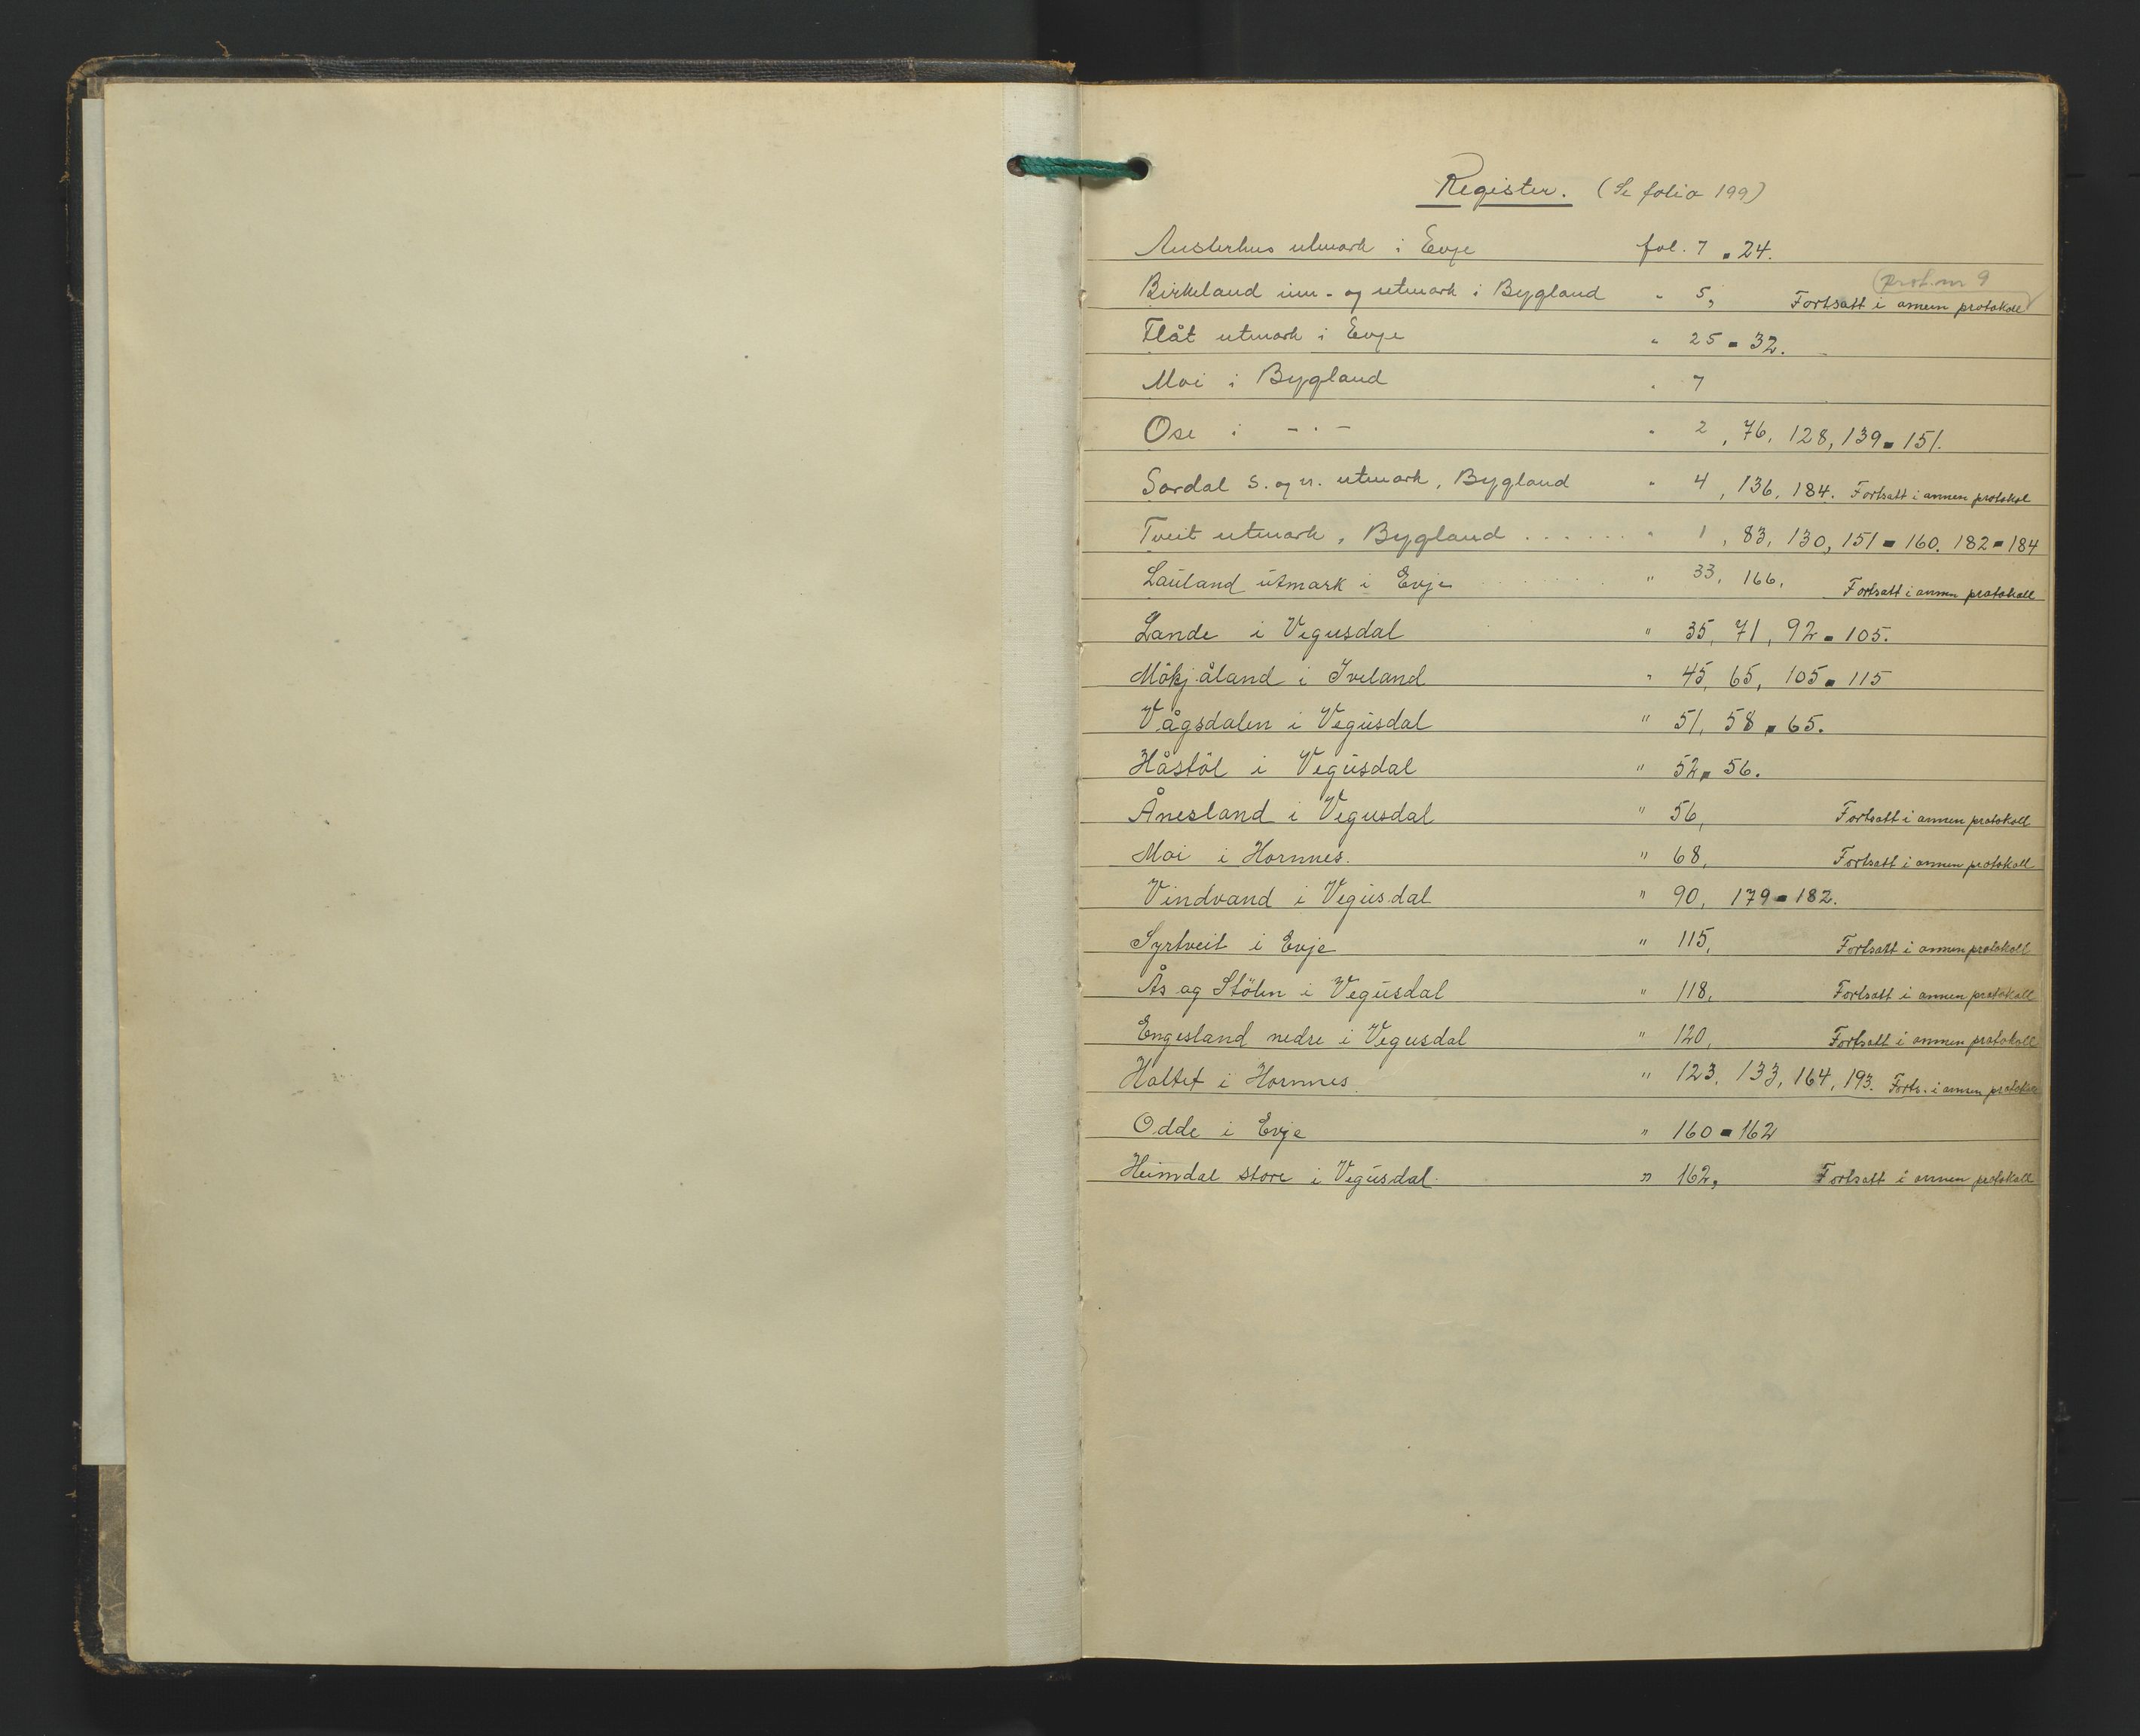 Register. (Se folio 199)
Austerhus utmark i Evje fol. 7 = 24.
(prot. nr 9
Birkeland inn- og utmark i Bygland " 5, Fortsatt i annen protokoll
Flåt utmark i Evje " 25 = 32.
Moi i Bygland " 7
Ose i - " - " 2, 76, 128, 139 = 151.
Sordal s. og n. utmark, Bygland " 4, 136, 184. Fortsatt i annen protokol
Tveit utmark, Bygland . . . . . . " 1, 83, 130, 151 = 160. 182 = 184
Lauland utmark i Evje " 33, 166, Fortsatt i annen protokoll
Lande i Vegusdal " 35, 71, 92 = 105.
Mökjåland i Iveland " 45, 65, 105 = 115
Vågsdalen i Vegusdal " 51, 58 = 65.
Håstöl i Vegusdal " 52 = 56.
Ånesland i Vegusdal " 56, Fortsatt i annen protokoll
Moi i Hornnes. " 68, Fortsatt i annen protokoll
Vindvand i Vegusdal " 90, 179 = 182.
Syrtveit i Evje " 115, Fortsatt i annen protokoll
Ås og Stölen i Vegusdal " 118, Fortsatt i annen protokoll
Engesland nedre i Vegusdal " 120, Fortsatt i annen protokoll
Holtet i Hornnes. " 123, 133, 164, 193. Forts. i annen protokoll
Odde i Evje " 160 = 162
Heimdal store i Vegusdal. " 162, Fortsatt i annen protokoll